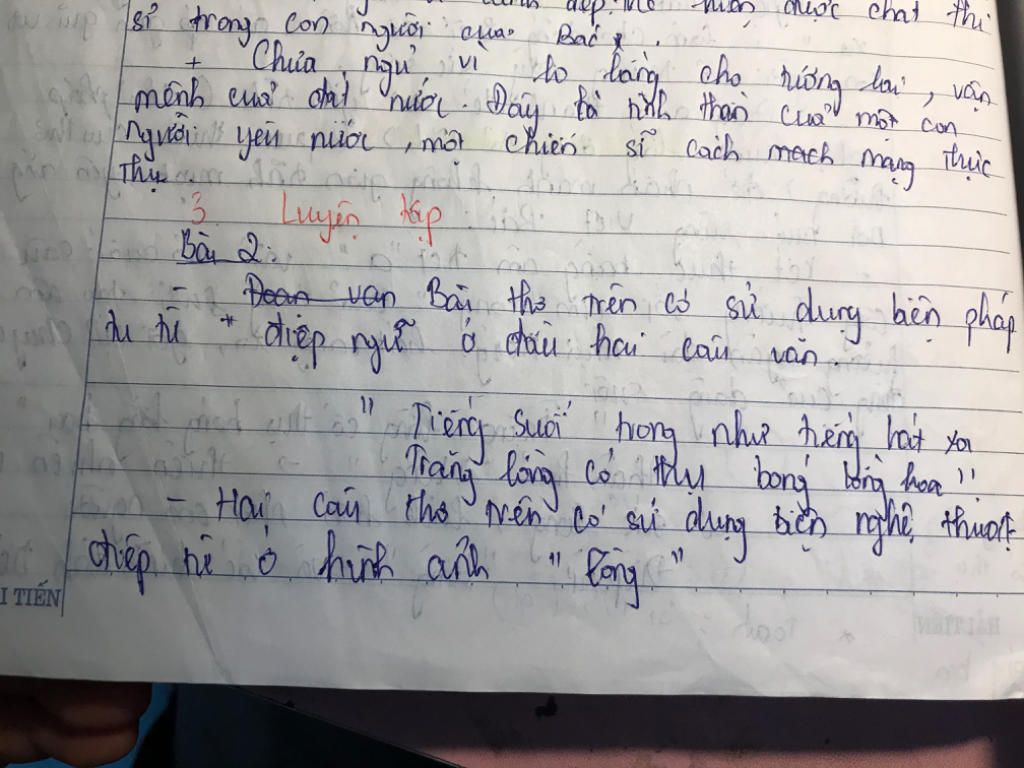 đẹp. được chất thi
sĩ trong con người của Bác.
+ Chưa ngủ vì lo lắng cho tương lai, vận
mệnh của đất nước. Đây là tinh thần của một con
người yêu nước, một chiến sĩ cách mạch mạng thực
thụ
3 Luyện tập
Bài 2:
- Đoan van Bài thơ trên có sử dụng biện pháp
tu từ * điệp ngữ ở đầu hai câu văn
" Tiếng suối trong như tiếng hát xa
Trăng lồng cổ thụ bóng lồng hoa"
- Hai câu thơ trên có sử dụng biện nghệ thuật
điệp từ ở hình ảnh " lồng "
I TIẾN